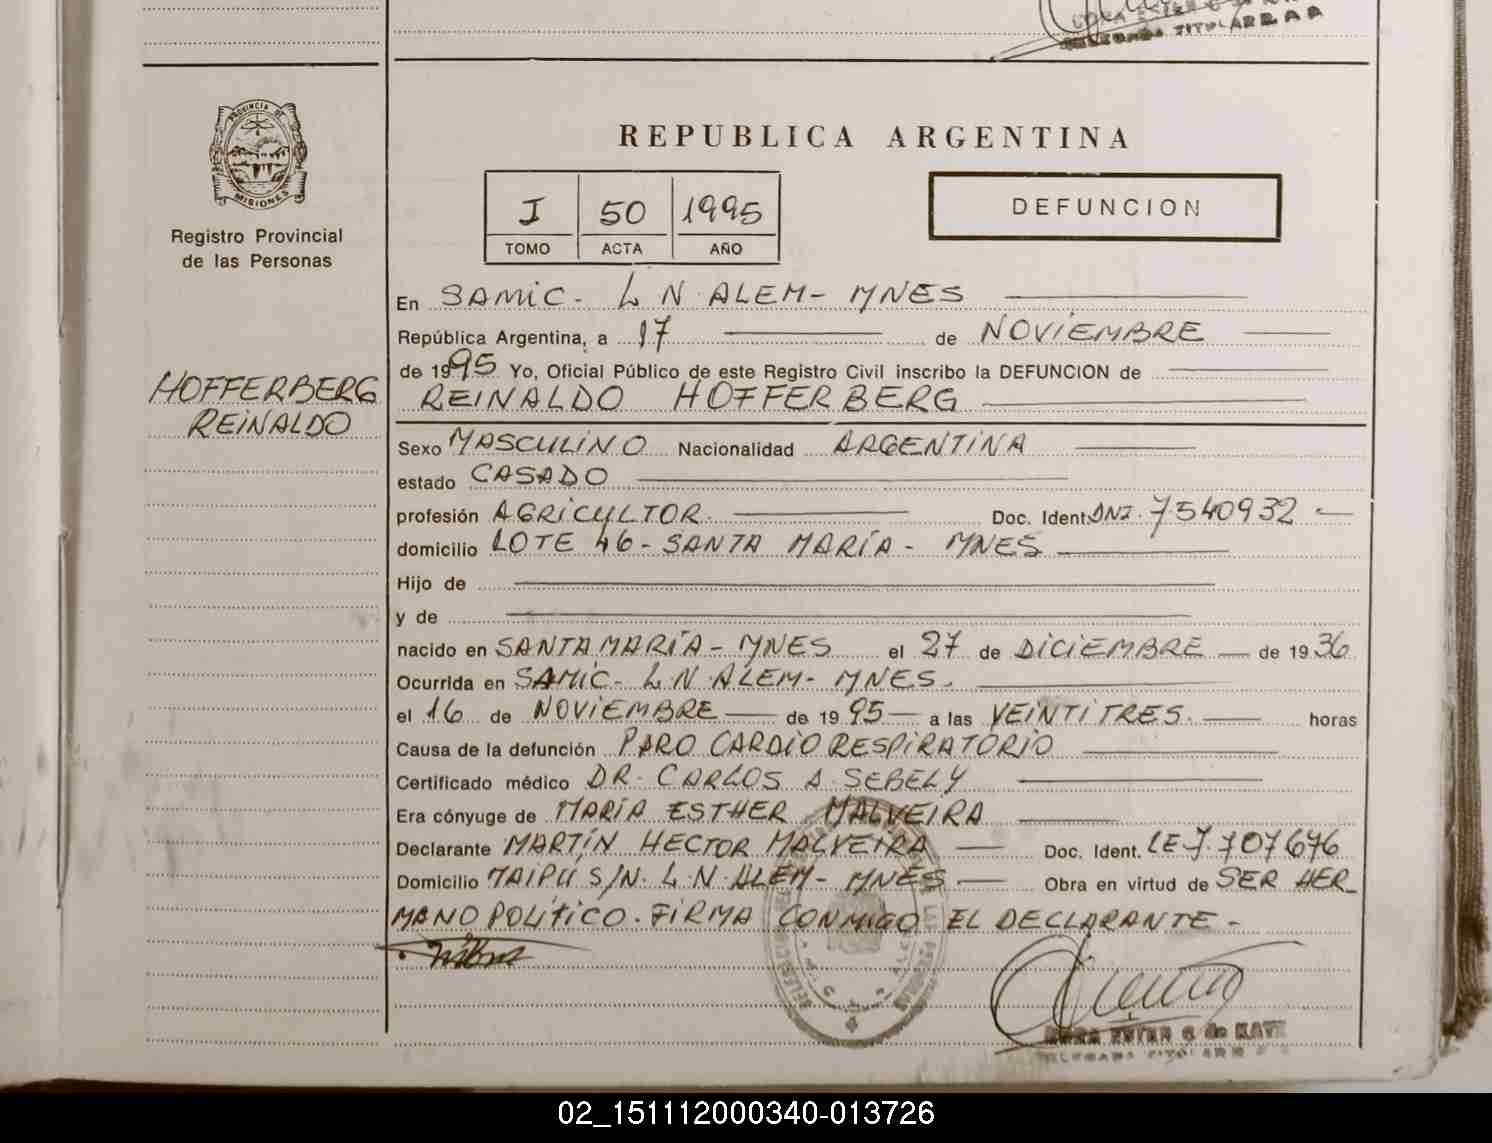 TITULAR R A A
PROVINCIA DE
MISIONES
Registro Provincial
de las Personas
HOFFERBERG
REINALDO
REPUBLICA ARGENTINA
I 50 1995
TOMO ACTA AÑO
DEFUNCION
En SAMIC- L N ALEM- MNES
República Argentina, a 17 de NOVIEMBRE
de 1995 Yo, Oficial Público de este Registro Civil inscribo la DEFUNCION de
REINALDO HOFFERBERG
Sexo MASCULINO Nacionalidad ARGENTINA
estado CASADO
profesión AGRICULTOR. Doc. Ident. DNI. 7540932
domicilio LOTE 46- SANTA MARÍA- MNES
Hijo de
y de
nacido en SANTA MARÍA- MNES el 27 de DICIEMBRE de 1936
Ocurrida en SAMIC- L N ALEM- MNES.
el 16 de NOVIEMBRE de 1995 a las VEINTITRES. horas
Causa de la defunción PARO CARDIO RESPIRATORIO
Certificado médico DR. CARLOS A SEBELY
Era cónyuge de MARÍA ESTHER MALVEIRA
Declarante MARTÍN HECTOR MALVEIRA Doc. Ident. LE 7.707676
Domicilio MAIPÚ S/N. L.N ALEM- MNES Obra en virtud de SER HER_
MANO POLÍTICO. FIRMA CONMIGO EL DECLARANTE-
ESTER G de
02_151112000340-013726